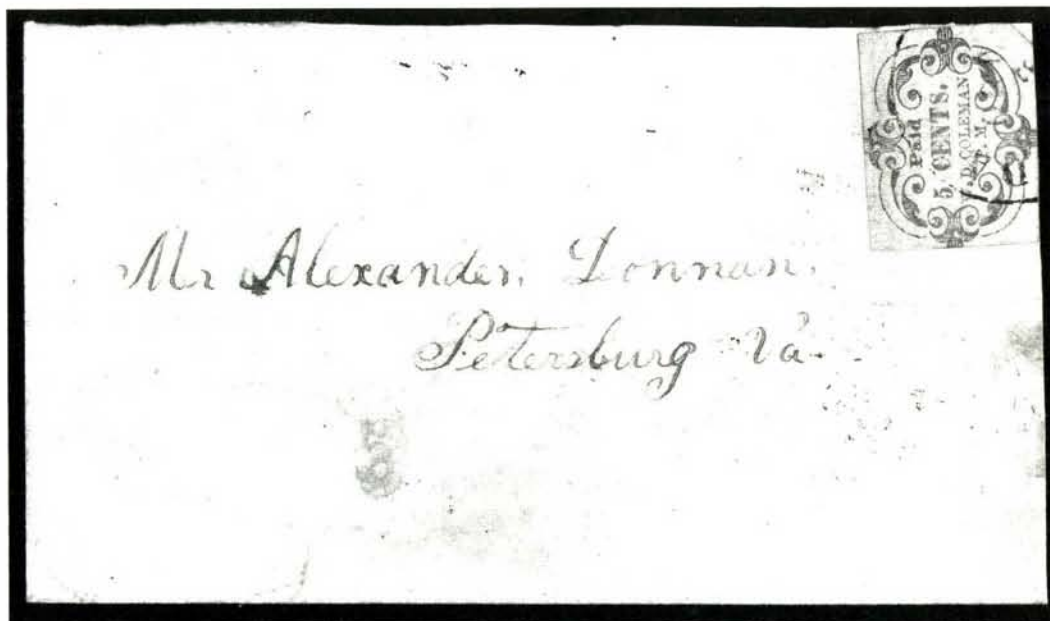 Paid
5 CENTS.
.D. COLEMAN
P. M.
Mr Alexander. Donnan.
Petersburg Va.